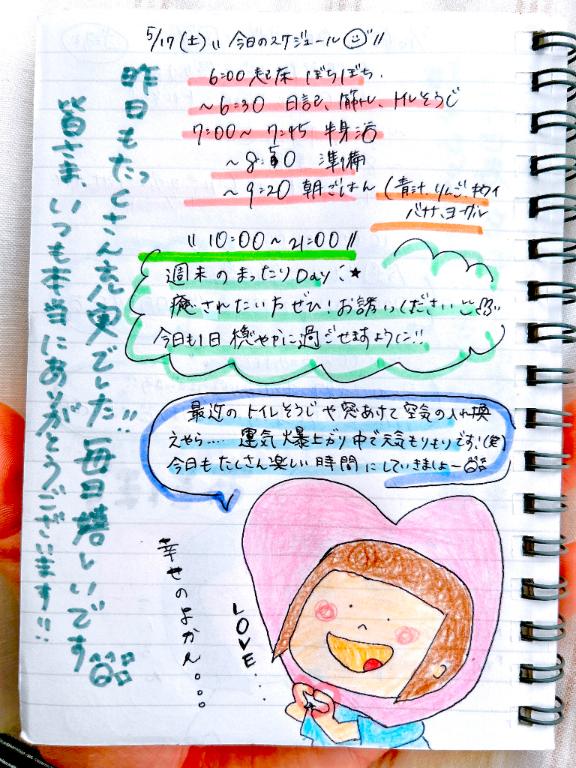 5/17(土) 〃 今日のスケジュール 〃
6:00 起床 ぼちぼち.
〜6:30 日記、筋トレ、トイレそうじ
7:00〜7:45 半身浴
〜8:50 準備
〜9:20 朝ごはん (青汁、りんご、キウイ
バナナ、ヨーグル
〃 10:00〜21:00 〃
週末のまったりDay ★
癒されたい方ぜひ!お誘いください
今日も1日穏やかに過ごせますように!!
最近のトイレそうじや窓あけて空気の入れ換
えやら..... 運気爆上がり中で元気もりもりです!(笑)
今日もたくさん楽しい時間にしていきましょー
昨日もたっくさん充実でした!! 毎日嬉しいです
皆さま、いつも本当にありがとうございます!!
幸せのよかん。。。
LOVE...